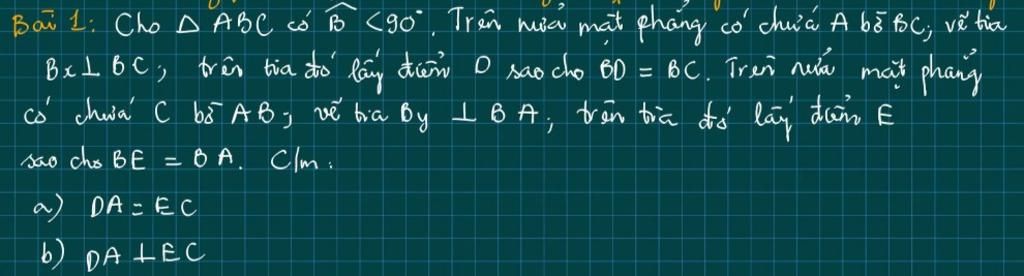 Bài 1: Cho Δ ABC có B̂ < 90°. Trên nửa mặt phẳng có chứa A bờ BC, vẽ tia
Bx ⊥ BC, trên tia đó lấy điểm D sao cho BD = BC. Trên nửa mặt phẳng
có chứa C bờ AB, vẽ tia By ⊥ BA, trên tia đó lấy điểm E
sao cho BE = BA. C/m:
a) DA = EC
b) DA ⊥ EC